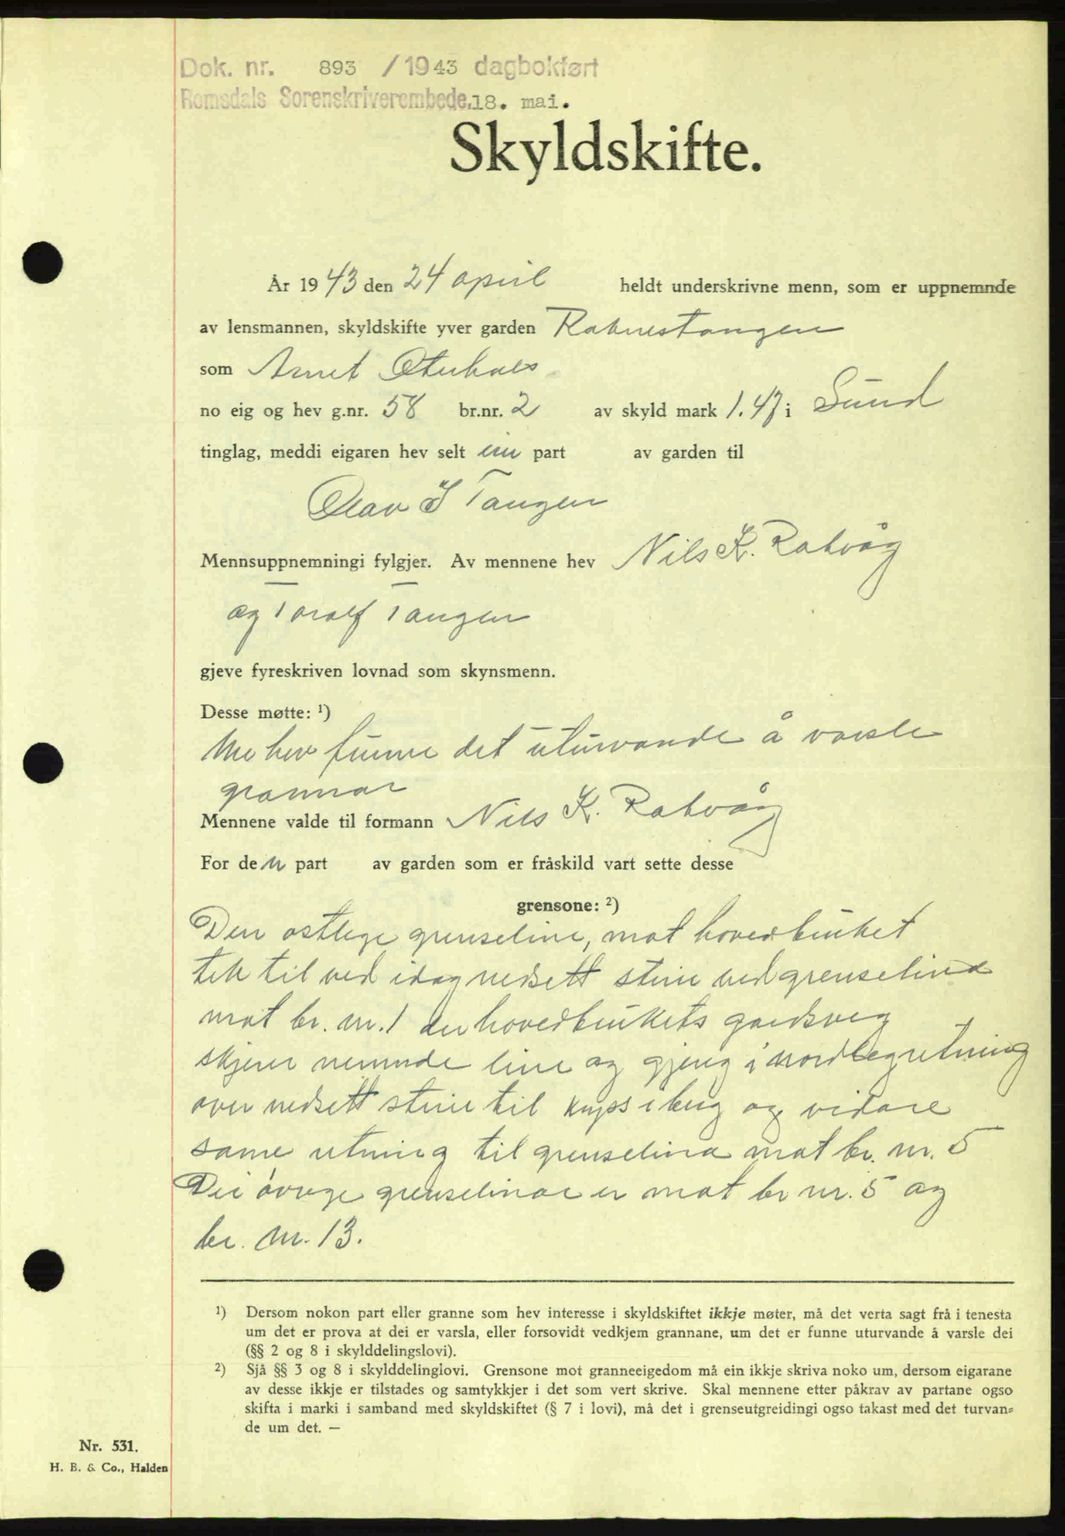 Dok. nr. 893 / 1943 dagbokført
Romsdals Sorenskriverembede, 18. mai.
Skyldskifte.
År 1943 den 24 april heldt underskrivne menn, som er uppnemnde
av lensmannen, skyldskifte yver garden
som Arnet
no eig og hev g.nr. 58 br.nr. 2 av skyld mark 1.47 i Sund
tinglag, meddi eigaren hev selt ein part av garden til
Olav I Tangen
Mennsuppnemningi fylgjer. Av mennene hev Nils K. Rakvåg
og Toralf Tangen
gjeve fyreskriven lovnad som skynsmenn.
Desse møtte: ¹)
Me hev funne det uturvande å varsle
grannar
Mennene valde til formann Nils K. Rakvåg
For den part av garden som er fråskild vart sette desse
grensone: ²)
Den østlege grenseline, mot hovedbruket
tek til ved idag nedsett stein ved grenselina
mot br. nr. 1 der hovedbrukets gardsveg
skjerer nemnde line og gjeng i nordleg retning
over nedsett stein til kryss i berg og vidare
same retning til grenselina mot br. nr. 5
Dei øvrige grenselinor er mot br nr. 5 og
br. nr. 13.
¹) Dersom nokon part eller granne som hev interesse i skyldskiftet ikkje møter, må det verta sagt frå i tenesta
um det er prova at dei er varsla, eller forsovidt vedkjem grannane, um det er funne uturvande å varsle dei
(§§ 2 og 8 i skylddelingslovi).
²) Sjå §§ 3 og 8 i skylddelinglovi. Grensone mot granneeigedom må ein ikkje skriva noko um, dersom eigarane
av desse ikkje er tilstades og samtykkjer i det som vert skrive. Skal mennene etter påkrav av partane ogso
skifta i marki i samband med skyldskiftet (§ 7 i lovi), må det i grenseutgreidingi ogso takast med det turvan=
de um det. —
Nr. 531.
H. B. & Co., Halden